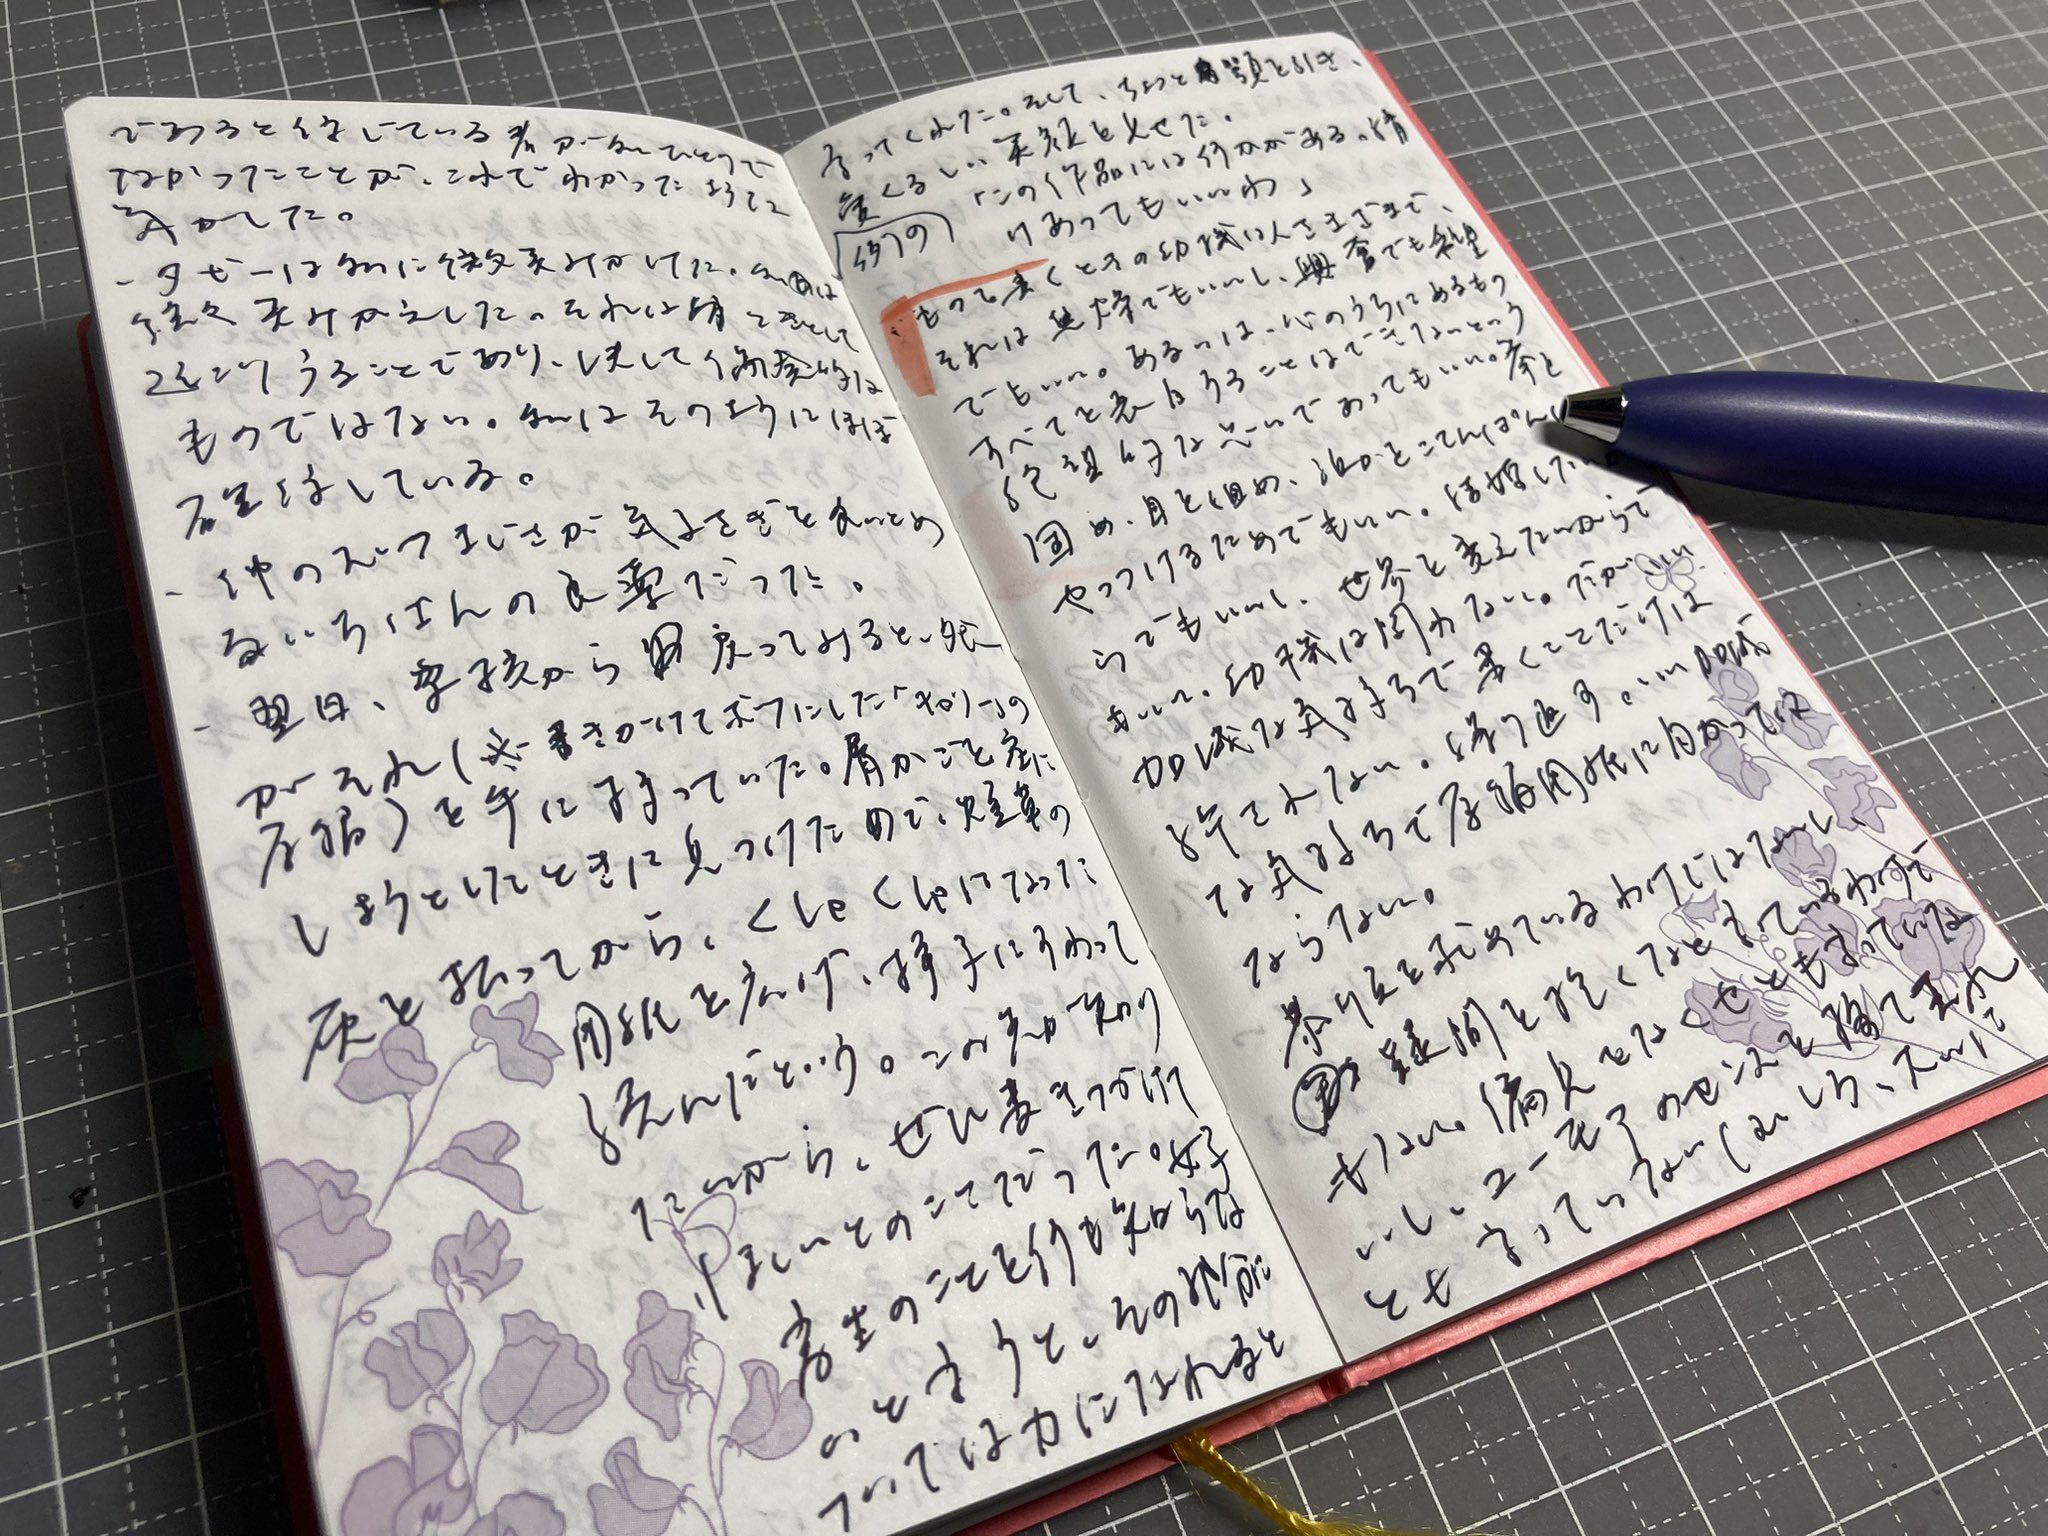 であると信じている者が
なかったことが、これでわかったような
気がした。
- タビーは私に微笑みかけた。私は
微笑みかえした。それは
起こりうることであり、決して
ものではない。私はそのようにほぼ
確信している。
- 仲のむつまじさが気まずさを
るいちばんの良薬だった。
- 翌日、学校から戻ってみると、娘
がそれ(※書きかけてボツにした「キャリー」の
原稿)を手に持っていた。屑かごを空に
しようとしたときに見つけたもので、煙草の
灰を払ってから、くしゃくしゃになった
用紙を広げ、椅子にすわって
読んだという。この先が知り
たいから、ぜひ書きつづけて
ほしいとのことだった。女子
高生のことを何も知らな
いと言うと、その部分に
ついては力になれると
言ってくれた。そして、ちょっと顎を引き、
愛くるしい笑顔を見せた。
「この作品には何かがある。請
けあってもいいわ」
もって書くときの動機は人さまざまで、
それは焦燥でもいいし、興奮でも希望
でもいい。あるいは、心のうちにあるもの
すべてを表白することはできないという
絶望的な思いであってもいい。拳を
固め、目を細め、誰かをこてんぱんに
やっつけるためでもいい。結婚したいか
らでもいいし、世界を変えたいからで
もいい。動機は問わない。だが、いい
加減な気持ちで書くことだけは
許されない。繰り返す。いい加減
な気持ちで原稿用紙に向かっては
ならない。
恭順を求めているわけではないし、
疑問を抱くなと言っているわけで
もない。偏見をなくせとも言っていな
いし、ユーモアのセンスを捨て去れ
とも言っていない(むしろ、